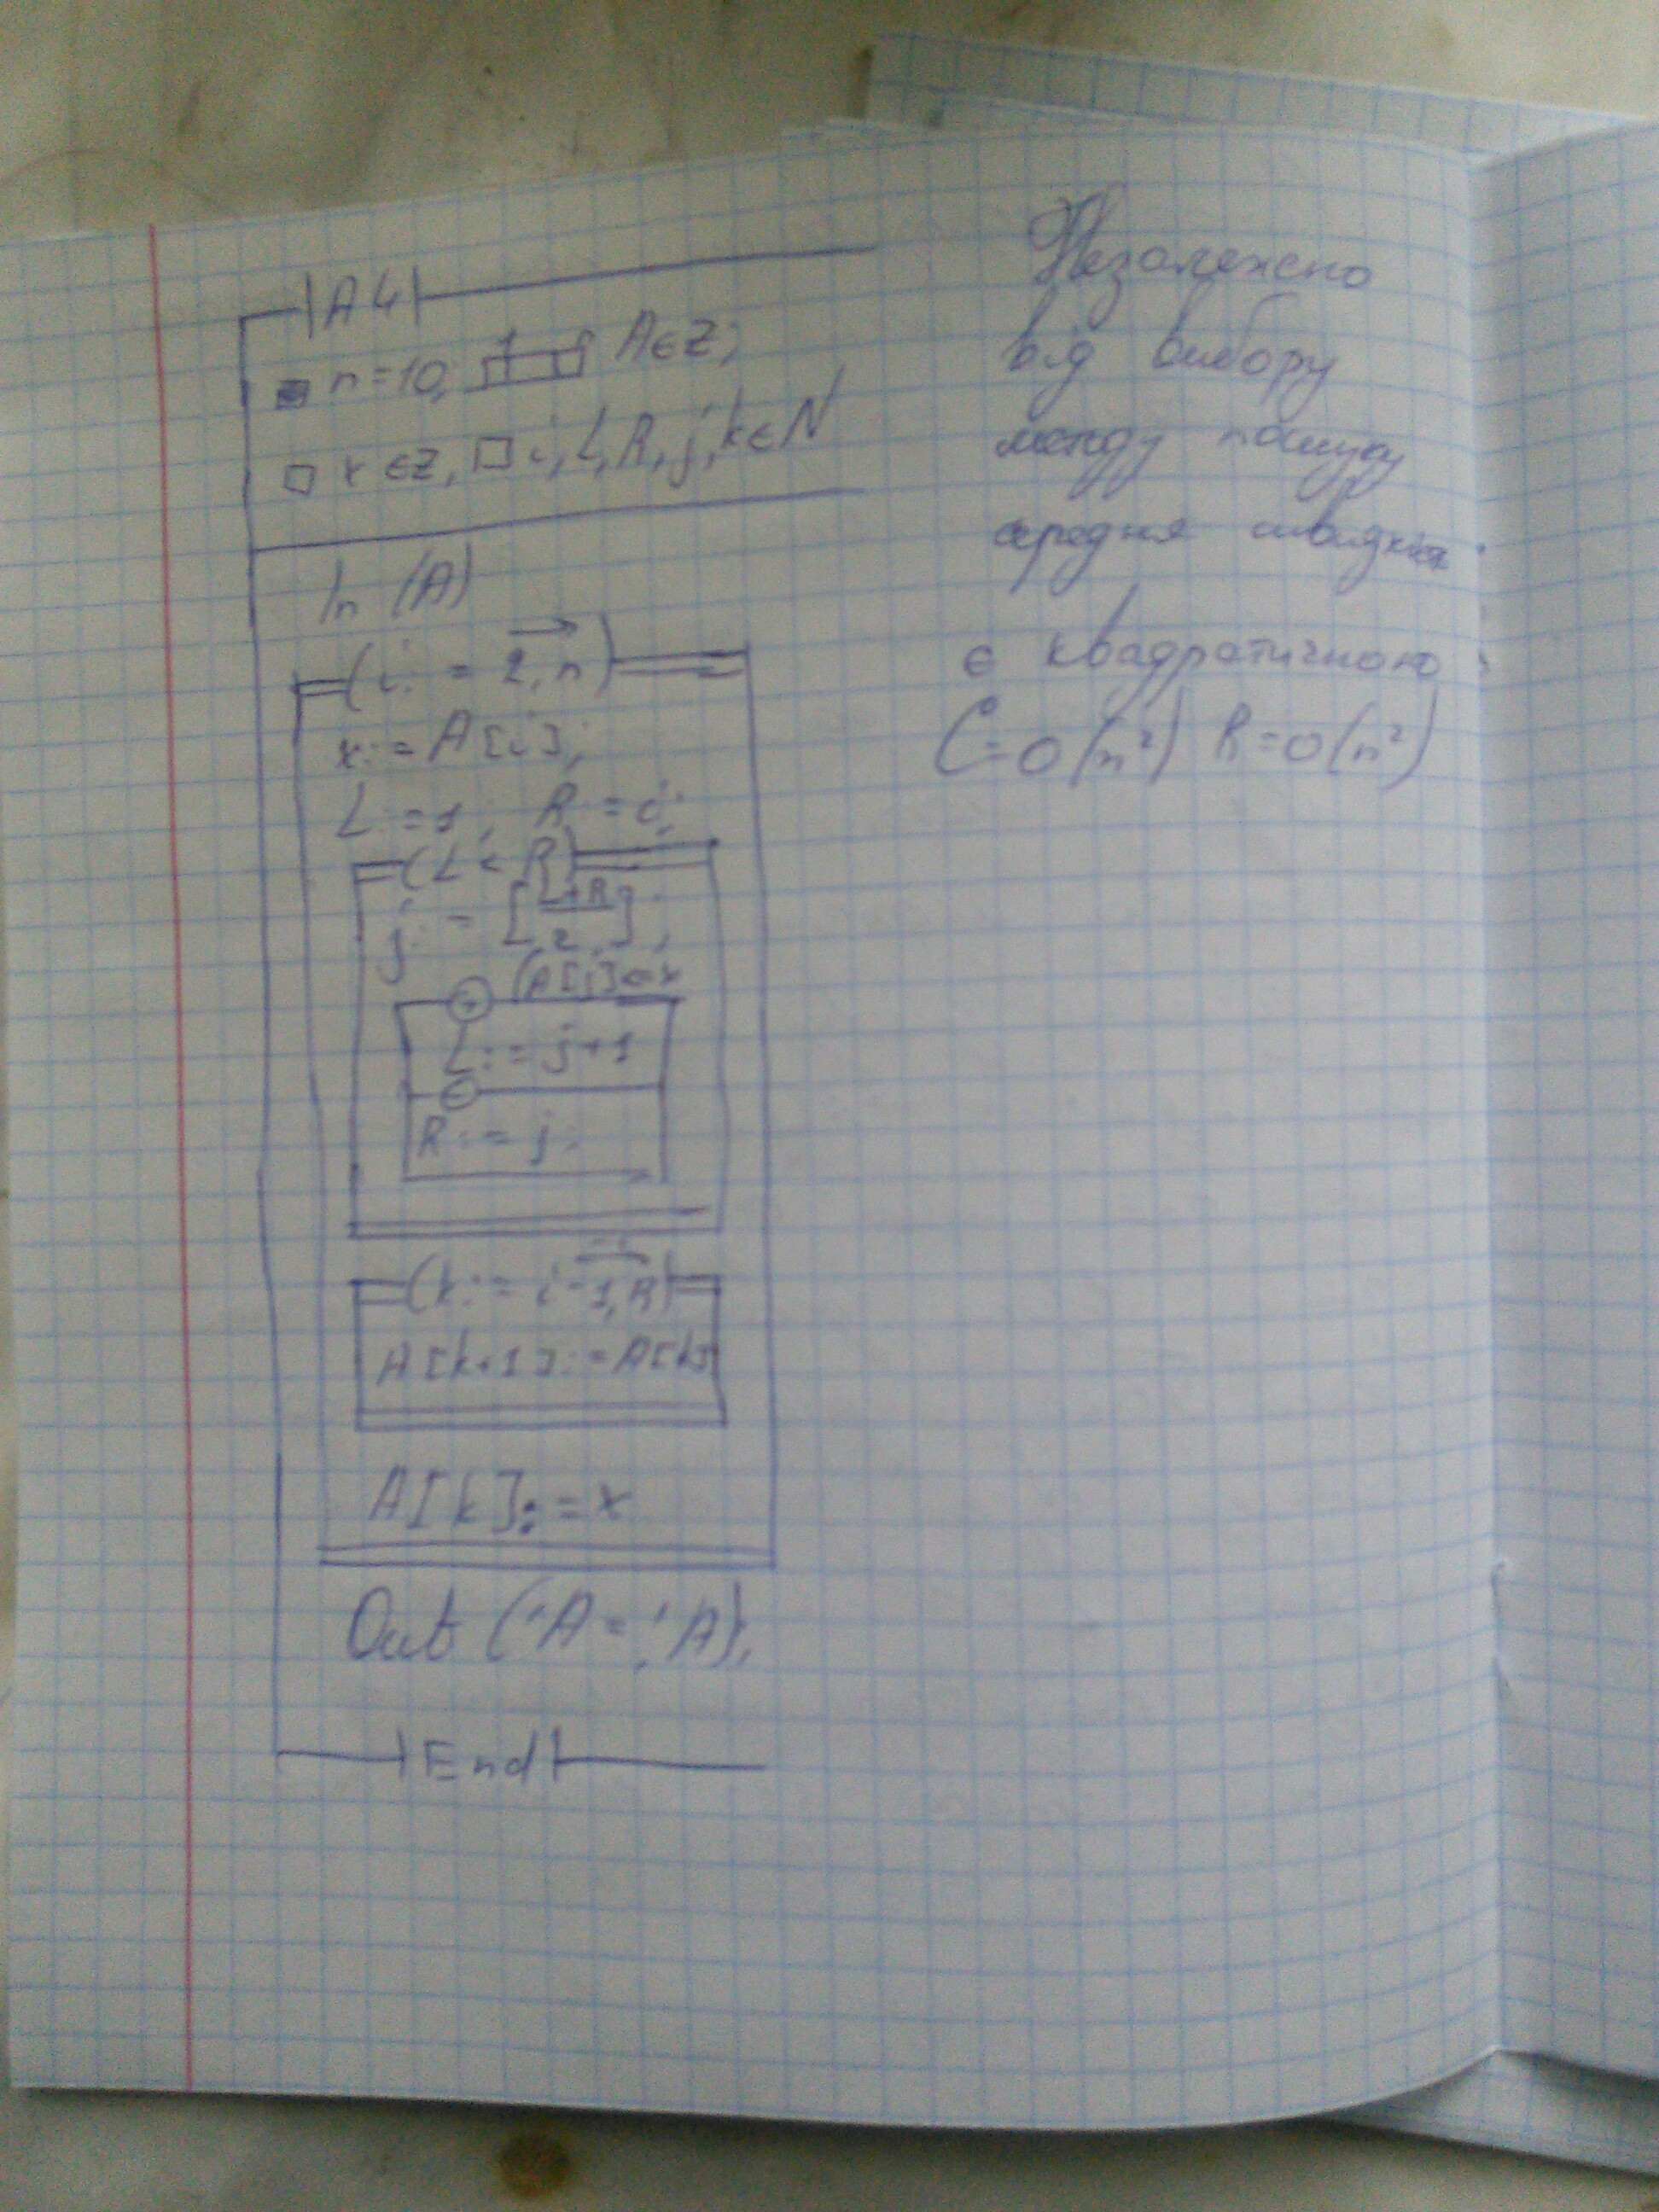 A4
n=10; 1 A∈Z;
x∈Z, i, L, R, j, k∈N
In (A)
(i:=2,n)
x:=A[i];
L:=1; R:=i;
(L<R)
j:=[L+R/2];
(A[j]<=x
+
L:=j+1
-
R:=j;
(k:=i-1,R)
A[k+1]:=A[k]
A[k]:=x
Out ('A=', A);
End
Незалежно
від вибору
между пошуку
середня швидкість
є квадратичною
C=O(n²) R=O(n²)